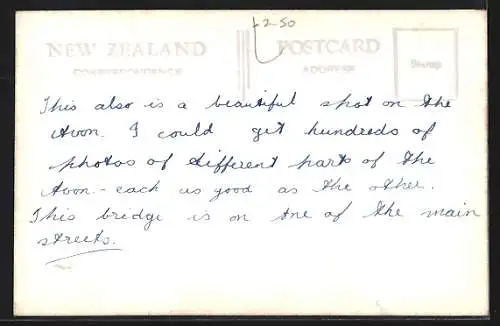 £2-50
NEW ZEALAND POSTCARD
CORRESPONDENCE ADDRESS Stamp
This also is a beautiful spot on the
Avon. I could get hundreds of
photos of different parts of the
Avon - each as good as the other.
This bridge is on one of the main
streets.